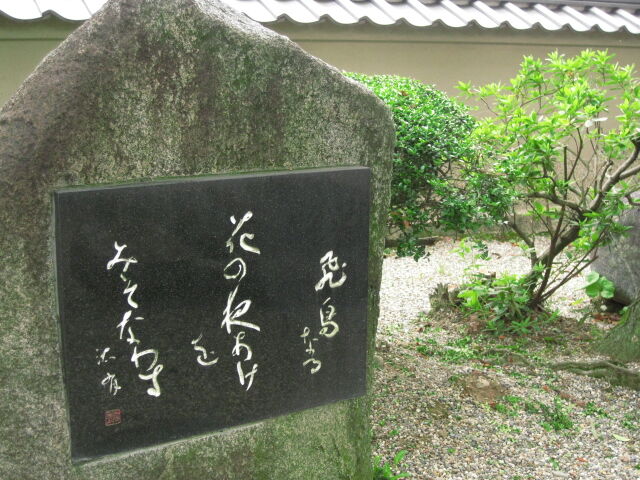 飛鳥なる
花の夜あけを
みそなわす